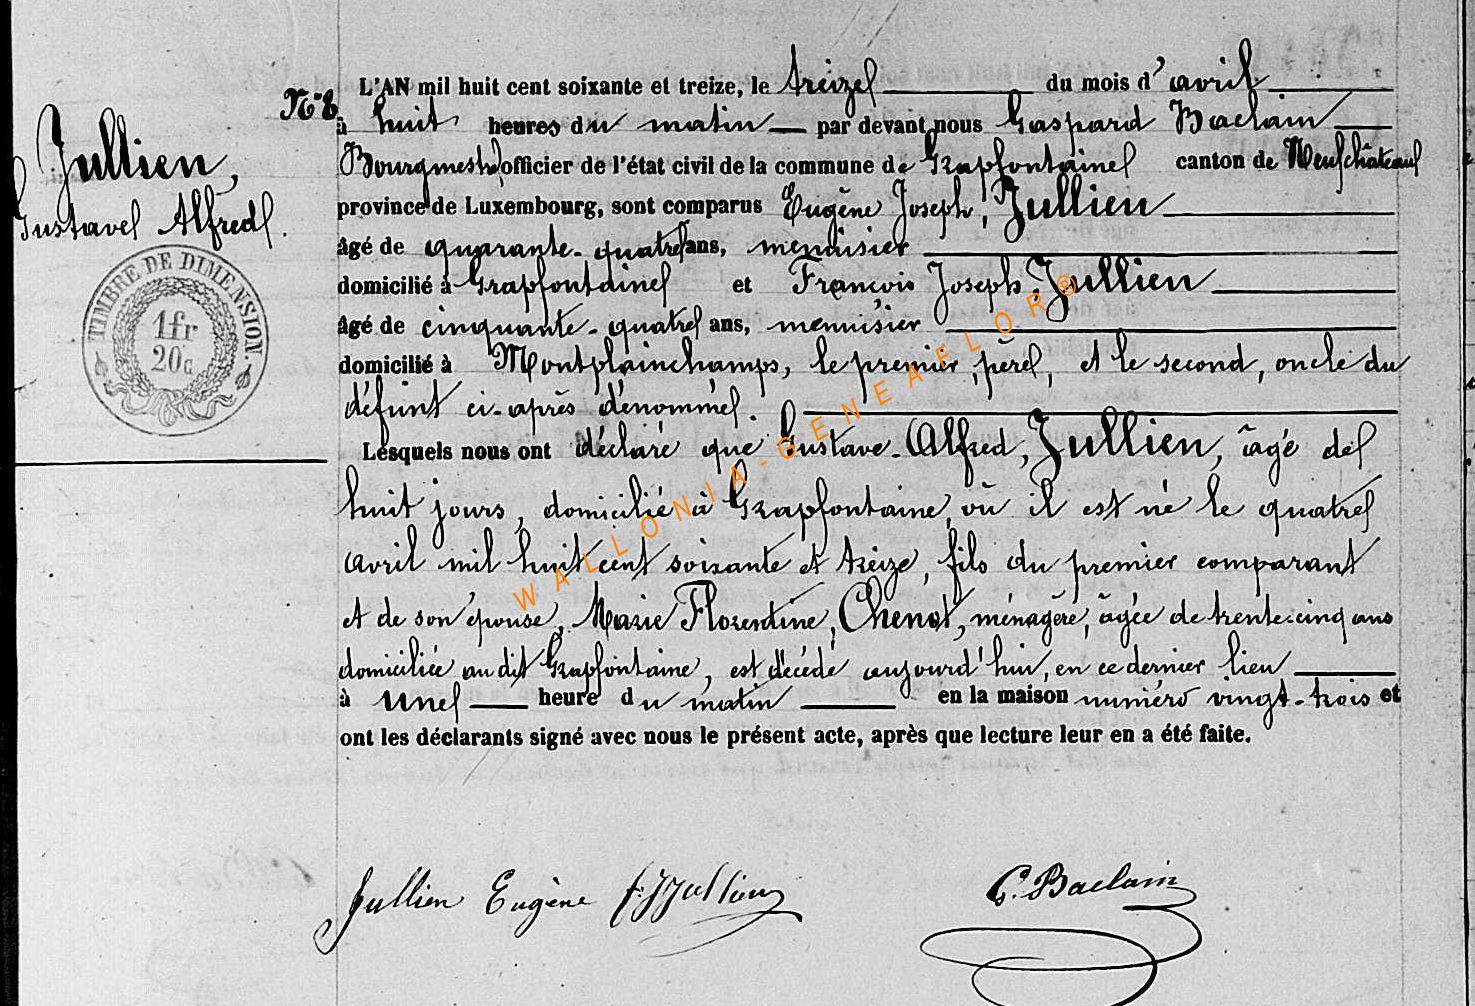 N° 8.
Jullien,
Gustave Alfred.
TIMBRE DE DIMENSION.
1 fr
20 c
L'AN mil huit cent soixante et treize, le treize du mois d'avril
à huit heures du matin par devant nous Gaspard Baclain
Bourgmestre officier de l'état civil de la commune de Grapfontaine canton de Neufchâteau
province de Luxembourg, sont comparus Eugène Joseph, Jullien
âgé de quarante-quatre ans, menuisier
domicilié à Grapfontaine et François Joseph, Jullien
âgé de cinquante-quatre ans, menuisier
domicilié à Montplainchamps, le premier, père, et le second, oncle du
défunt ci-après dénommé.
Lesquels nous ont déclaré que Gustave-Alfred, Jullien, âgé de
huit jours, domicilié à Grapfontaine, où il est né le quatre
avril mil huit cent soixante et treize, fils du premier comparant
et de son épouse, Marie Florentine, Chenot, ménagère, âgée de trente-cinq ans
domiciliée au dit Grapfontaine, est décédé aujourd'hui, en ce dernier lieu
à une heure du matin en la maison numéro vingt-trois et
ont les déclarants signé avec nous le présent acte, après que lecture leur en a été faite.
Jullien Eugène F. J. Jullien G. Baclain
WALLONIA-GENEAELOR®